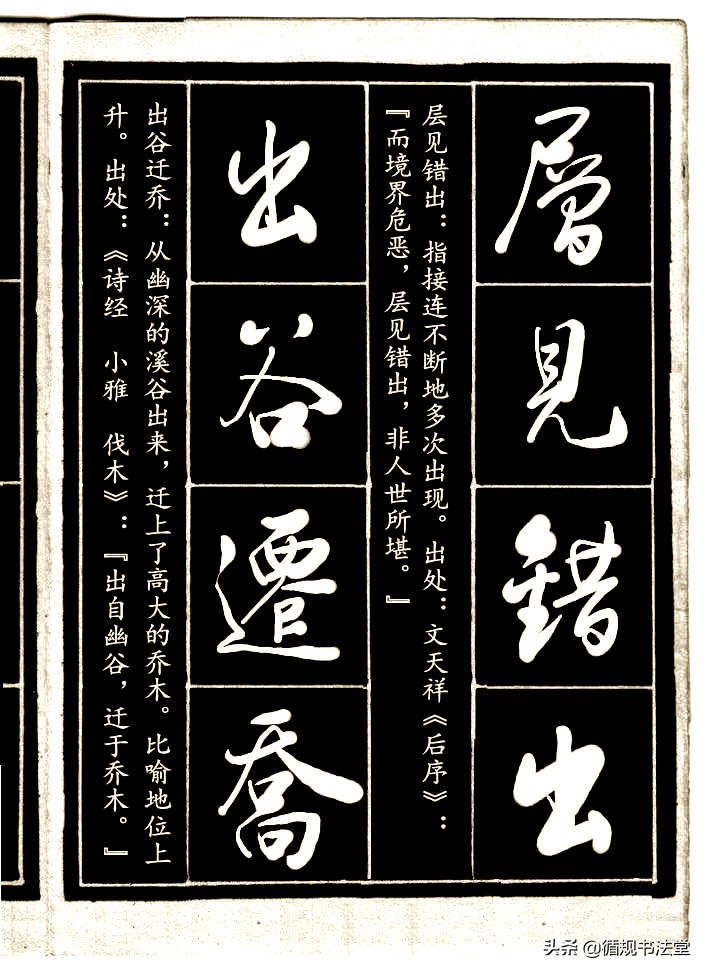 層見錯出
层见错出：指接连不断地多次出现。出处：文天祥《后序》：
『而境界危恶，层见错出，非人世所堪。』
出谷遷喬
出谷迁乔：从幽深的溪谷出来，迁上了高大的乔木。比喻地位上
升。出处：《诗经 小雅 伐木》：『出自幽谷，迁于乔木。』
头条 @循规书法堂